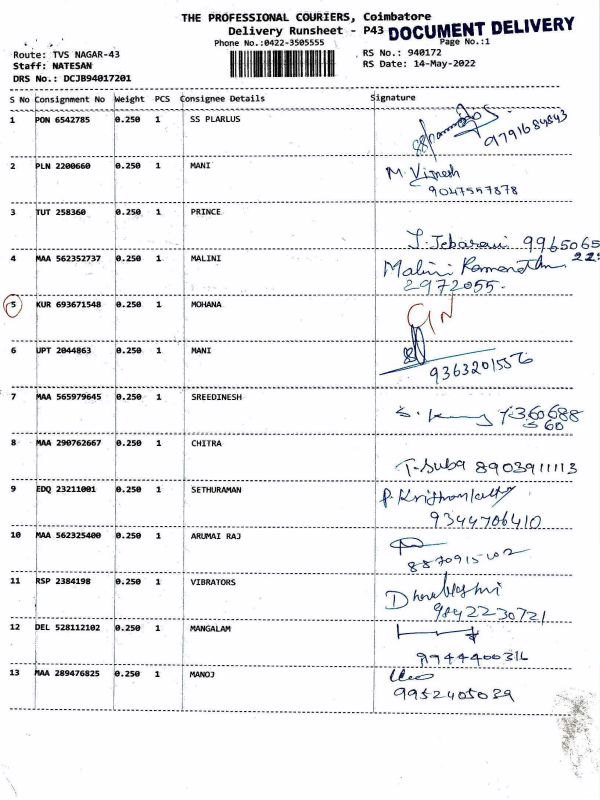 THE PROFESSIONAL COURIERS, Coimbatore
Delivery Runsheet - P43 DOCUMENT DELIVERY
Phone No.:0422-3505555 Page No.:1
Route: TVS NAGAR-43 RS No.: 940172
Staff: NATESAN RS Date: 14-May-2022
DRS No.: DCJB94017201
S No Consignment No Weight PCS Consignee Details Signature
1 PON 6542785 0.250 1 SS PLARLUS
9791684843
2 PLN 2200660 0.250 1 MANI M. Vignesh
9047557878
3 TUT 258360 0.250 1 PRINCE
J. Jebarani 9965065
22
4 MAA 562352737 0.250 1 MALINI Malini Ramanathan
2972055.
5 KUR 693671548 0.250 1 MOHANA
6 UPT 2044863 0.250 1 MANI
9363201556
7 MAA 565979645 0.250 1 SREEDINESH
360688
8 MAA 290762667 0.250 1 CHITRA
T. Suba 8903911113
9 EDQ 23211001 0.250 1 SETHURAMAN
9344706410
10 MAA 562325400 0.250 1 ARUMAI RAJ
8870915102
11 RSP 2384198 0.250 1 VIBRATORS
9842230721
12 DEL 528112102 0.250 1 MANGALAM
9944400316
13 MAA 289476825 0.250 1 MANOJ
9952405039